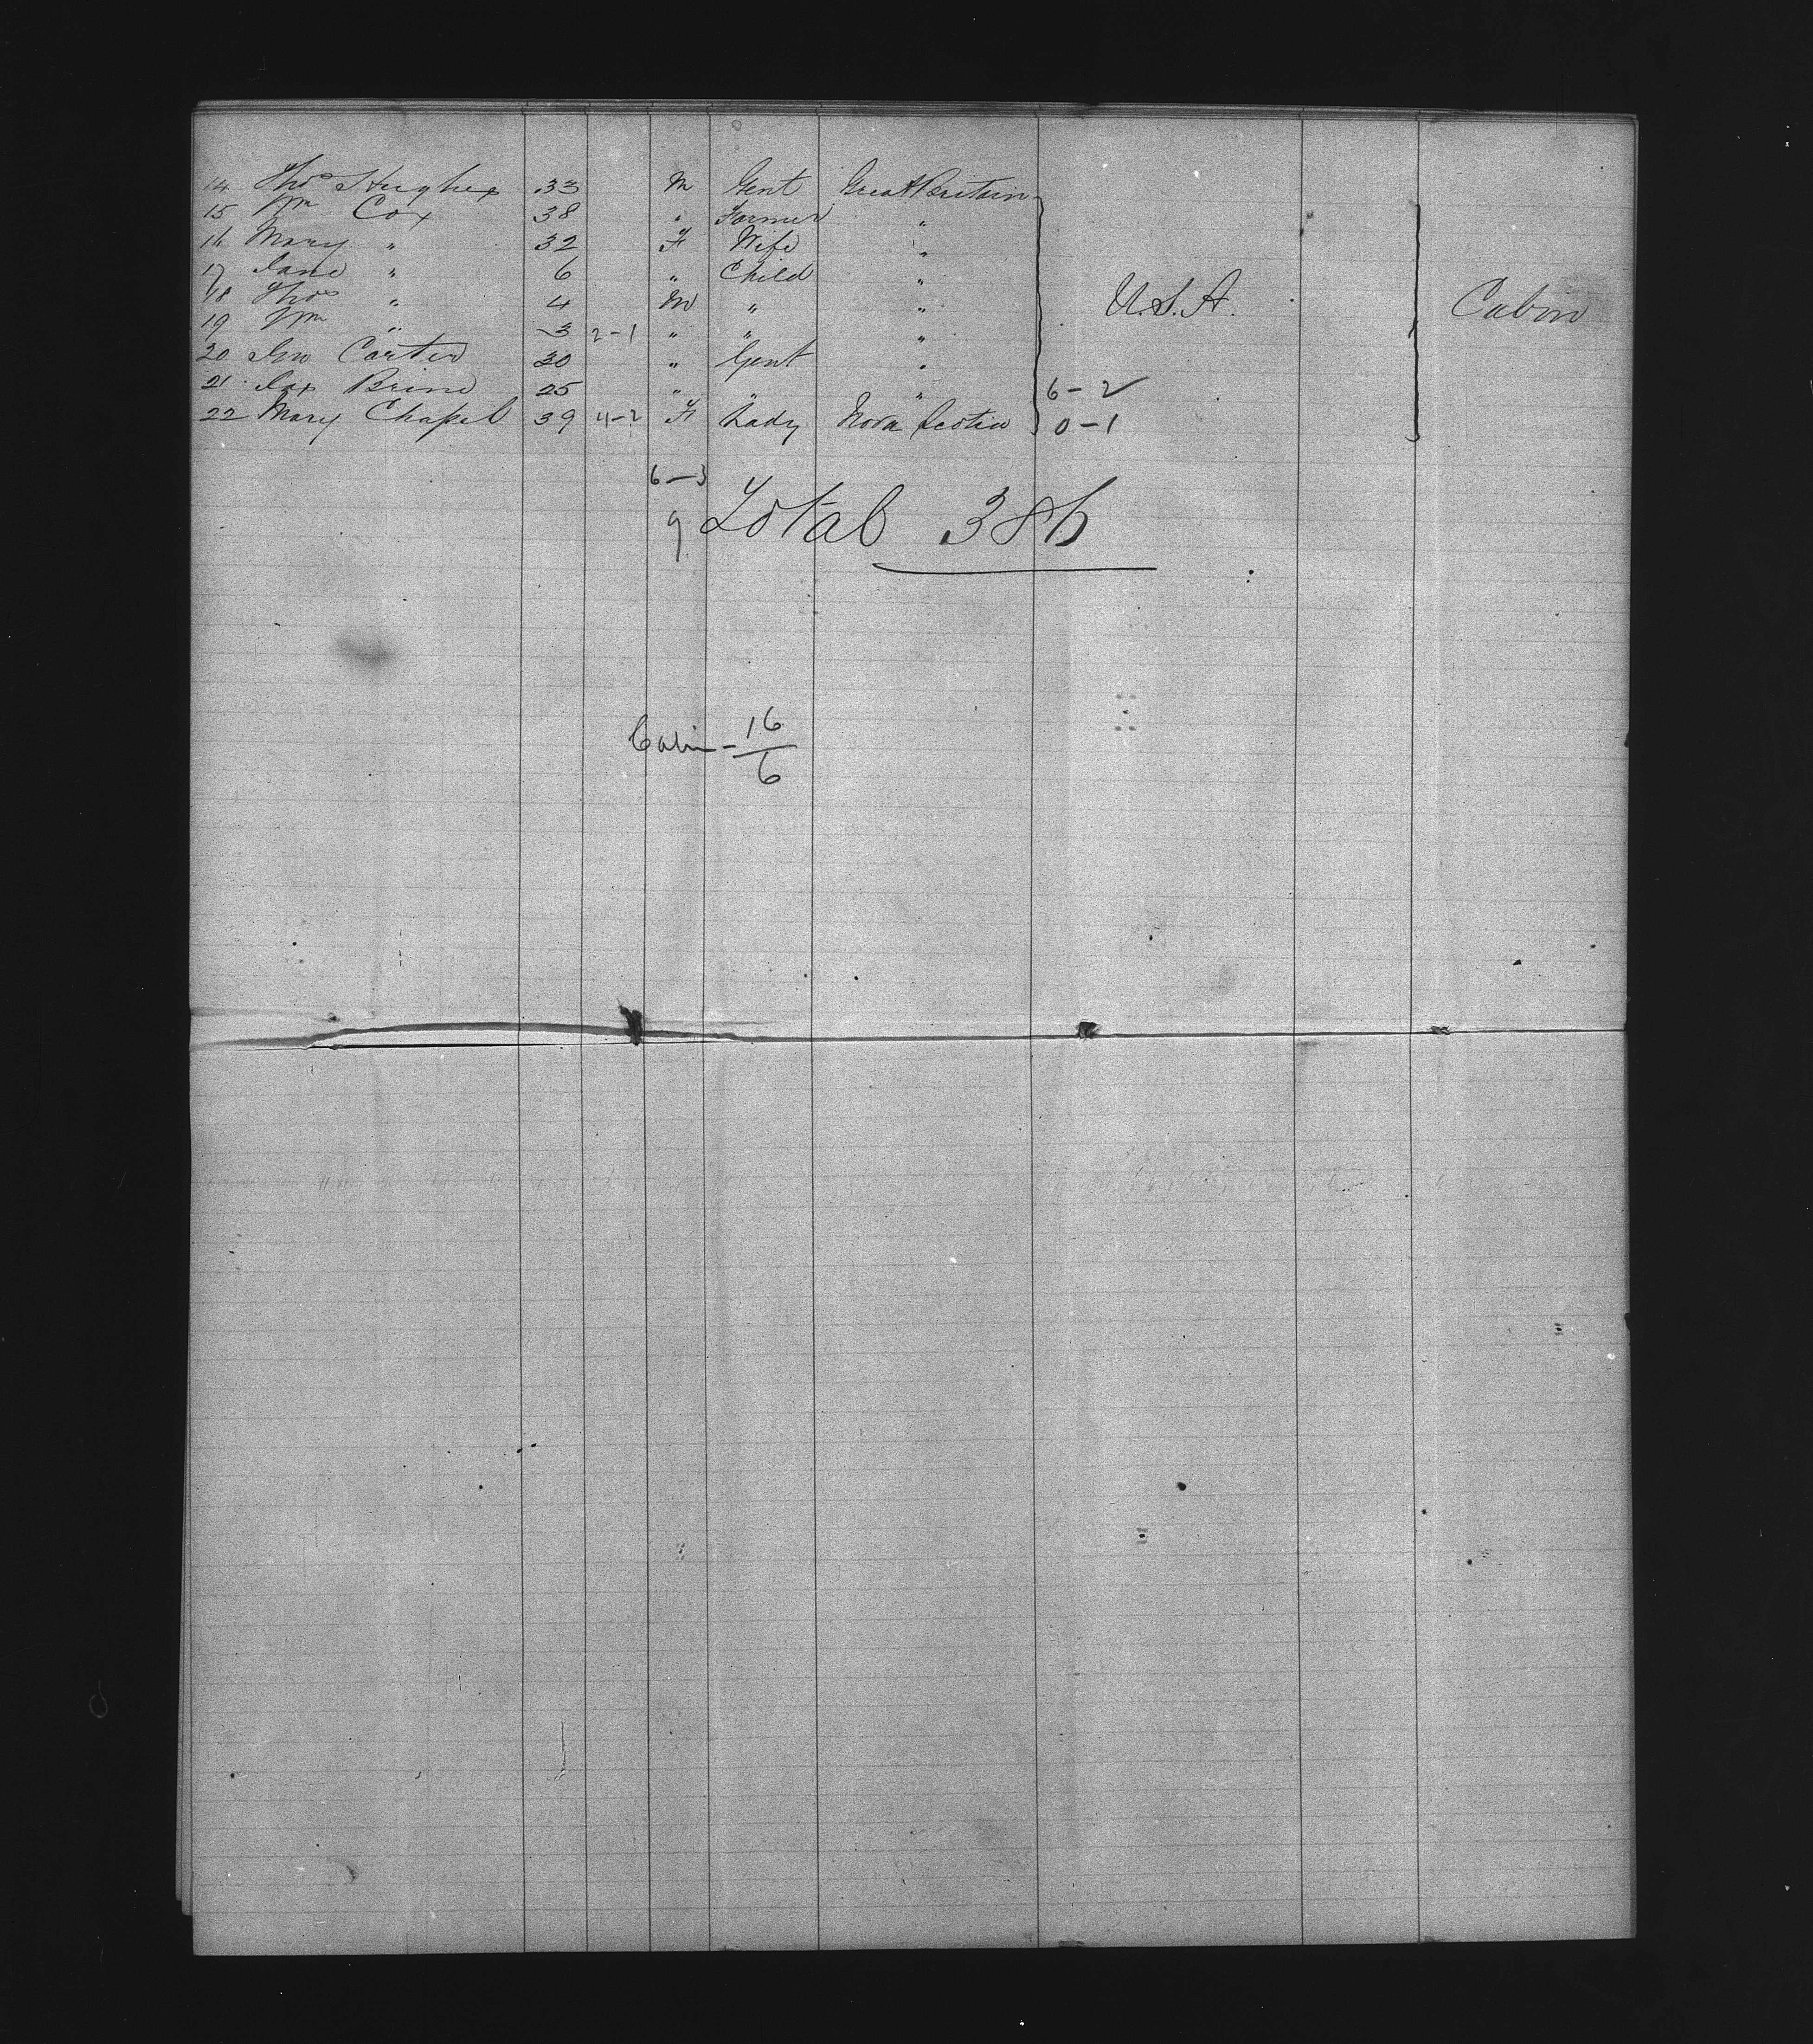 14 Thos Hughes 33 M Gent Great Britain
15 Wm Cox 38 " Farmer "
16 Mary " 32 F Wife "
17 Jane " 6 " Child "
18 Thos " 4 M " " U.S.A. Cabin
19 Wm " 3 2-1 " " "
20 Jno Carter 30 " Gent "
21 Jas Brind 25 " " " 6-2
22 Mary Chapel 39 4-2 F Lady Nova Scotia 0-1
6-3
9 Total 386
Cabin - 16
6